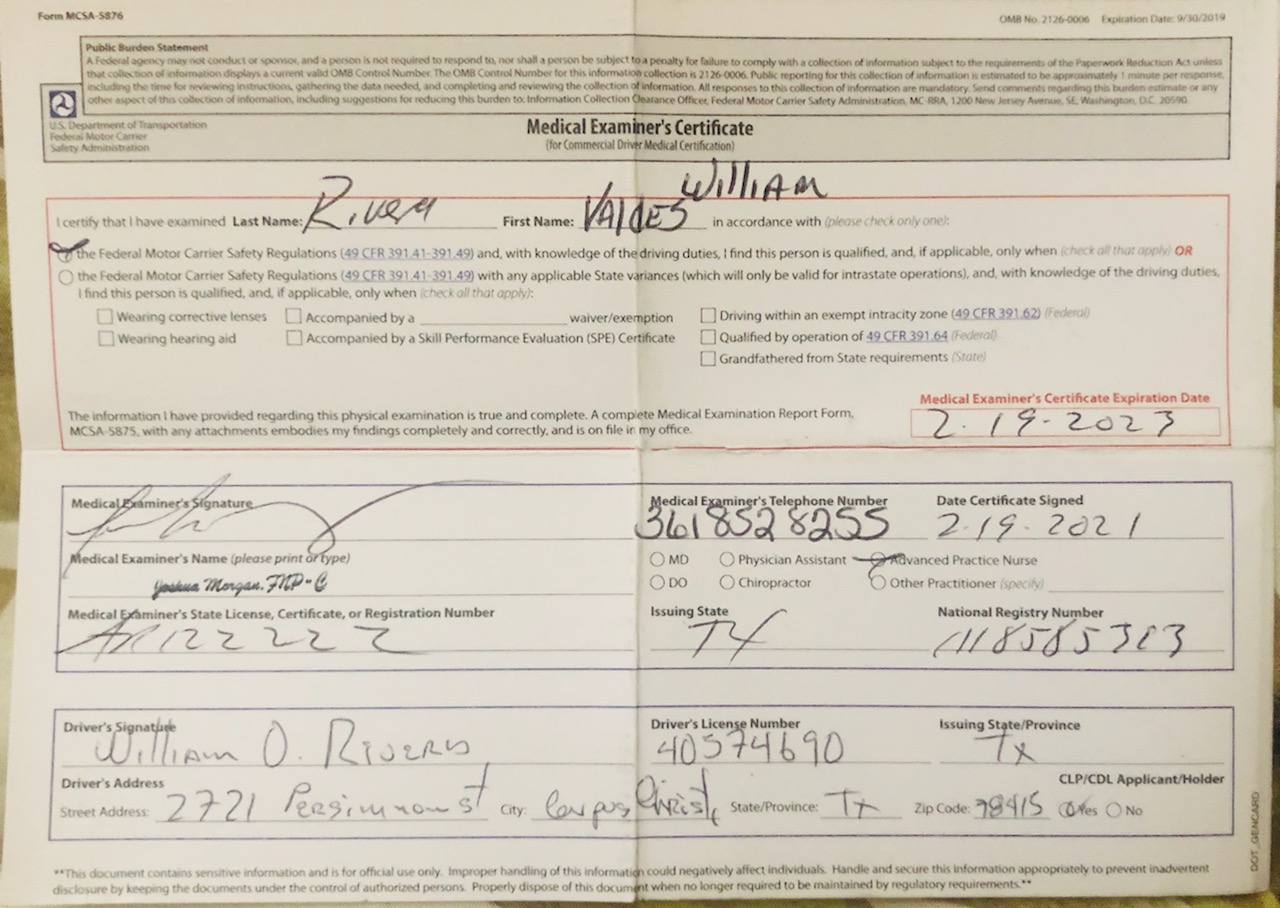 Form MCSA-5876
OMB No. 2126-0006 Expiration Date: 9/30/2019
Public Burden Statement
A Federal agency may not conduct or sponsor, and a person is not required to respond to, nor shall a person be subject to a penalty for failure to comply with a collection of information subject to the requirements of the Paperwork Reduction Act unless
that collection of information displays a current valid OMB Control Number. The OMB Control Number for this information collection is 2126-0006. Public reporting for this collection of information is estimated to be approximately 1 minute per response,
including the time for reviewing instructions, gathering the data needed, and completing and reviewing the collection of information. All responses to this collection of information are mandatory. Send comments regarding this burden estimate or any
other aspect of this collection of information, including suggestions for reducing this burden to: Information Collection Clearance Officer, Federal Motor Carrier Safety Administration, MC-RRA, 1200 New Jersey Avenue, SE, Washington, D.C. 20590.
U.S. Department of Transportation
Federal Motor Carrier
Safety Administration
Medical Examiner's Certificate
(for Commercial Driver Medical Certification)
I certify that I have examined Last Name: Rivera First Name: VAldES William in accordance with (please check only one):
the Federal Motor Carrier Safety Regulations (49 CFR 391.41-391.49) and, with knowledge of the driving duties, I find this person is qualified, and, if applicable, only when (check all that apply) OR
the Federal Motor Carrier Safety Regulations (49 CFR 391.41-391.49) with any applicable State variances (which will only be valid for intrastate operations), and, with knowledge of the driving duties,
I find this person is qualified, and, if applicable, only when (check all that apply):
Wearing corrective lenses Accompanied by a waiver/exemption Driving within an exempt intracity zone (49 CFR 391.62) (Federal)
Wearing hearing aid Accompanied by a Skill Performance Evaluation (SPE) Certificate Qualified by operation of 49 CFR 391.64 (Federal)
Grandfathered from State requirements (State)
Medical Examiner's Certificate Expiration Date
2-19-2023
The information I have provided regarding this physical examination is true and complete. A complete Medical Examination Report Form,
MCSA-5875, with any attachments embodies my findings completely and correctly, and is on file in my office.
Medical Examiner's Signature Medical Examiner's Telephone Number Date Certificate Signed
3618528255 2-19-2021
Medical Examiner's Name (please print or type) MD Physician Assistant Advanced Practice Nurse
Joshua Morgan, FNP-C DO Chiropractor Other Practitioner (specify)
Medical Examiner's State License, Certificate, or Registration Number Issuing State National Registry Number
TX
Driver's Signature Driver's License Number Issuing State/Province
William O. Rivera 40574690 Tx
Driver's Address CLP/CDL Applicant/Holder
Street Address: 2721 Persimmon st City: Corpus Christi State/Province: Tx Zip Code: 78415 Yes No
**This document contains sensitive information and is for official use only. Improper handling of this information could negatively affect individuals. Handle and secure this information appropriately to prevent inadvertent
disclosure by keeping the documents under the control of authorized persons. Properly dispose of this document when no longer required to be maintained by regulatory requirements.**
DOT_GENCARD